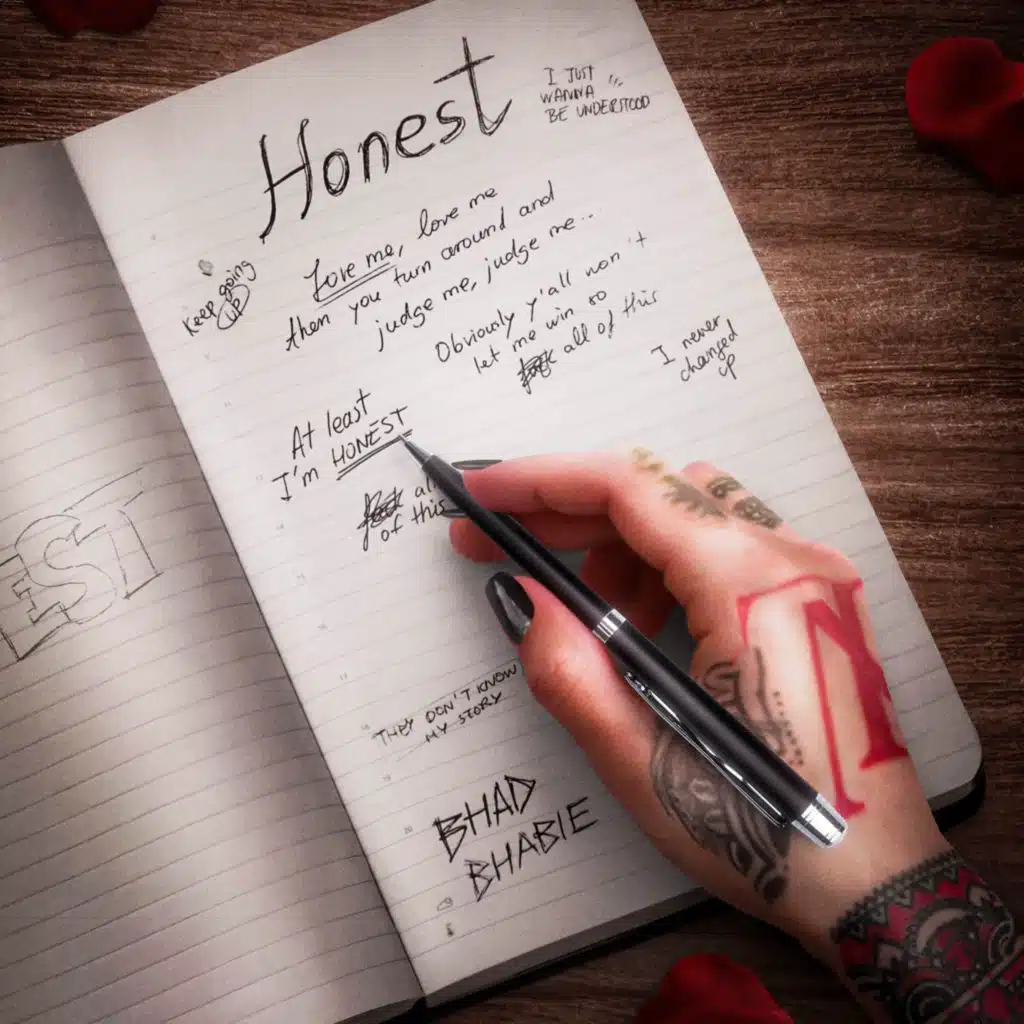 Honest
I JUST
WANNA
BE UNDERSTOOD
Love me, love me
then you turn around and
judge me, judge me..
Keep going
UP
Obviously y'all won't
let me win so
all of this
I never
changed
up
At least
I'm HONEST
of this
EST
THEY DON'T KNOW
MY STORY
BHAD
BHABIE